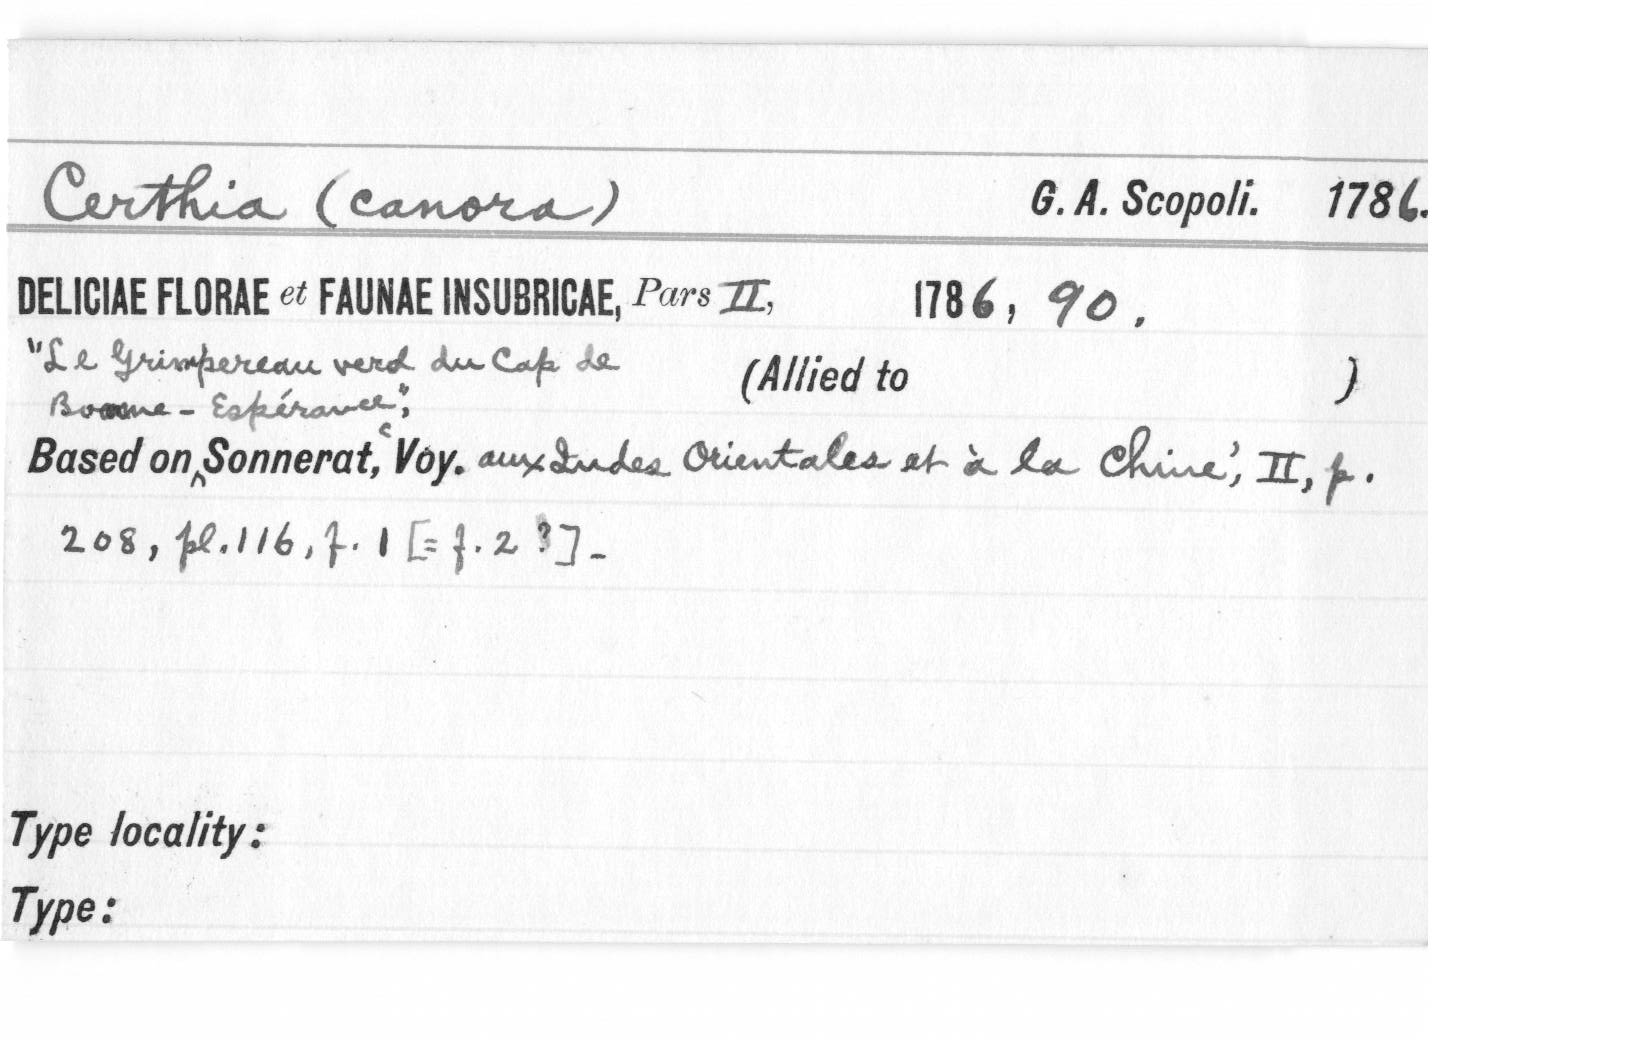 Certhia (canora) G. A. Scopoli. 1786.
DELICIAE FLORAE et FAUNAE INSUBRICAE, Pars II, 1786, 90.
"Le Grimpereau verd du Cap de (Allied to )
Bonne-Espérance",
Based on ^ Sonnerat, 'Voy. aux Indes Orientales et à la Chine', II, p.
208, pl. 116, f. 1 [= f. 2 ?] -
Type locality:
Type: